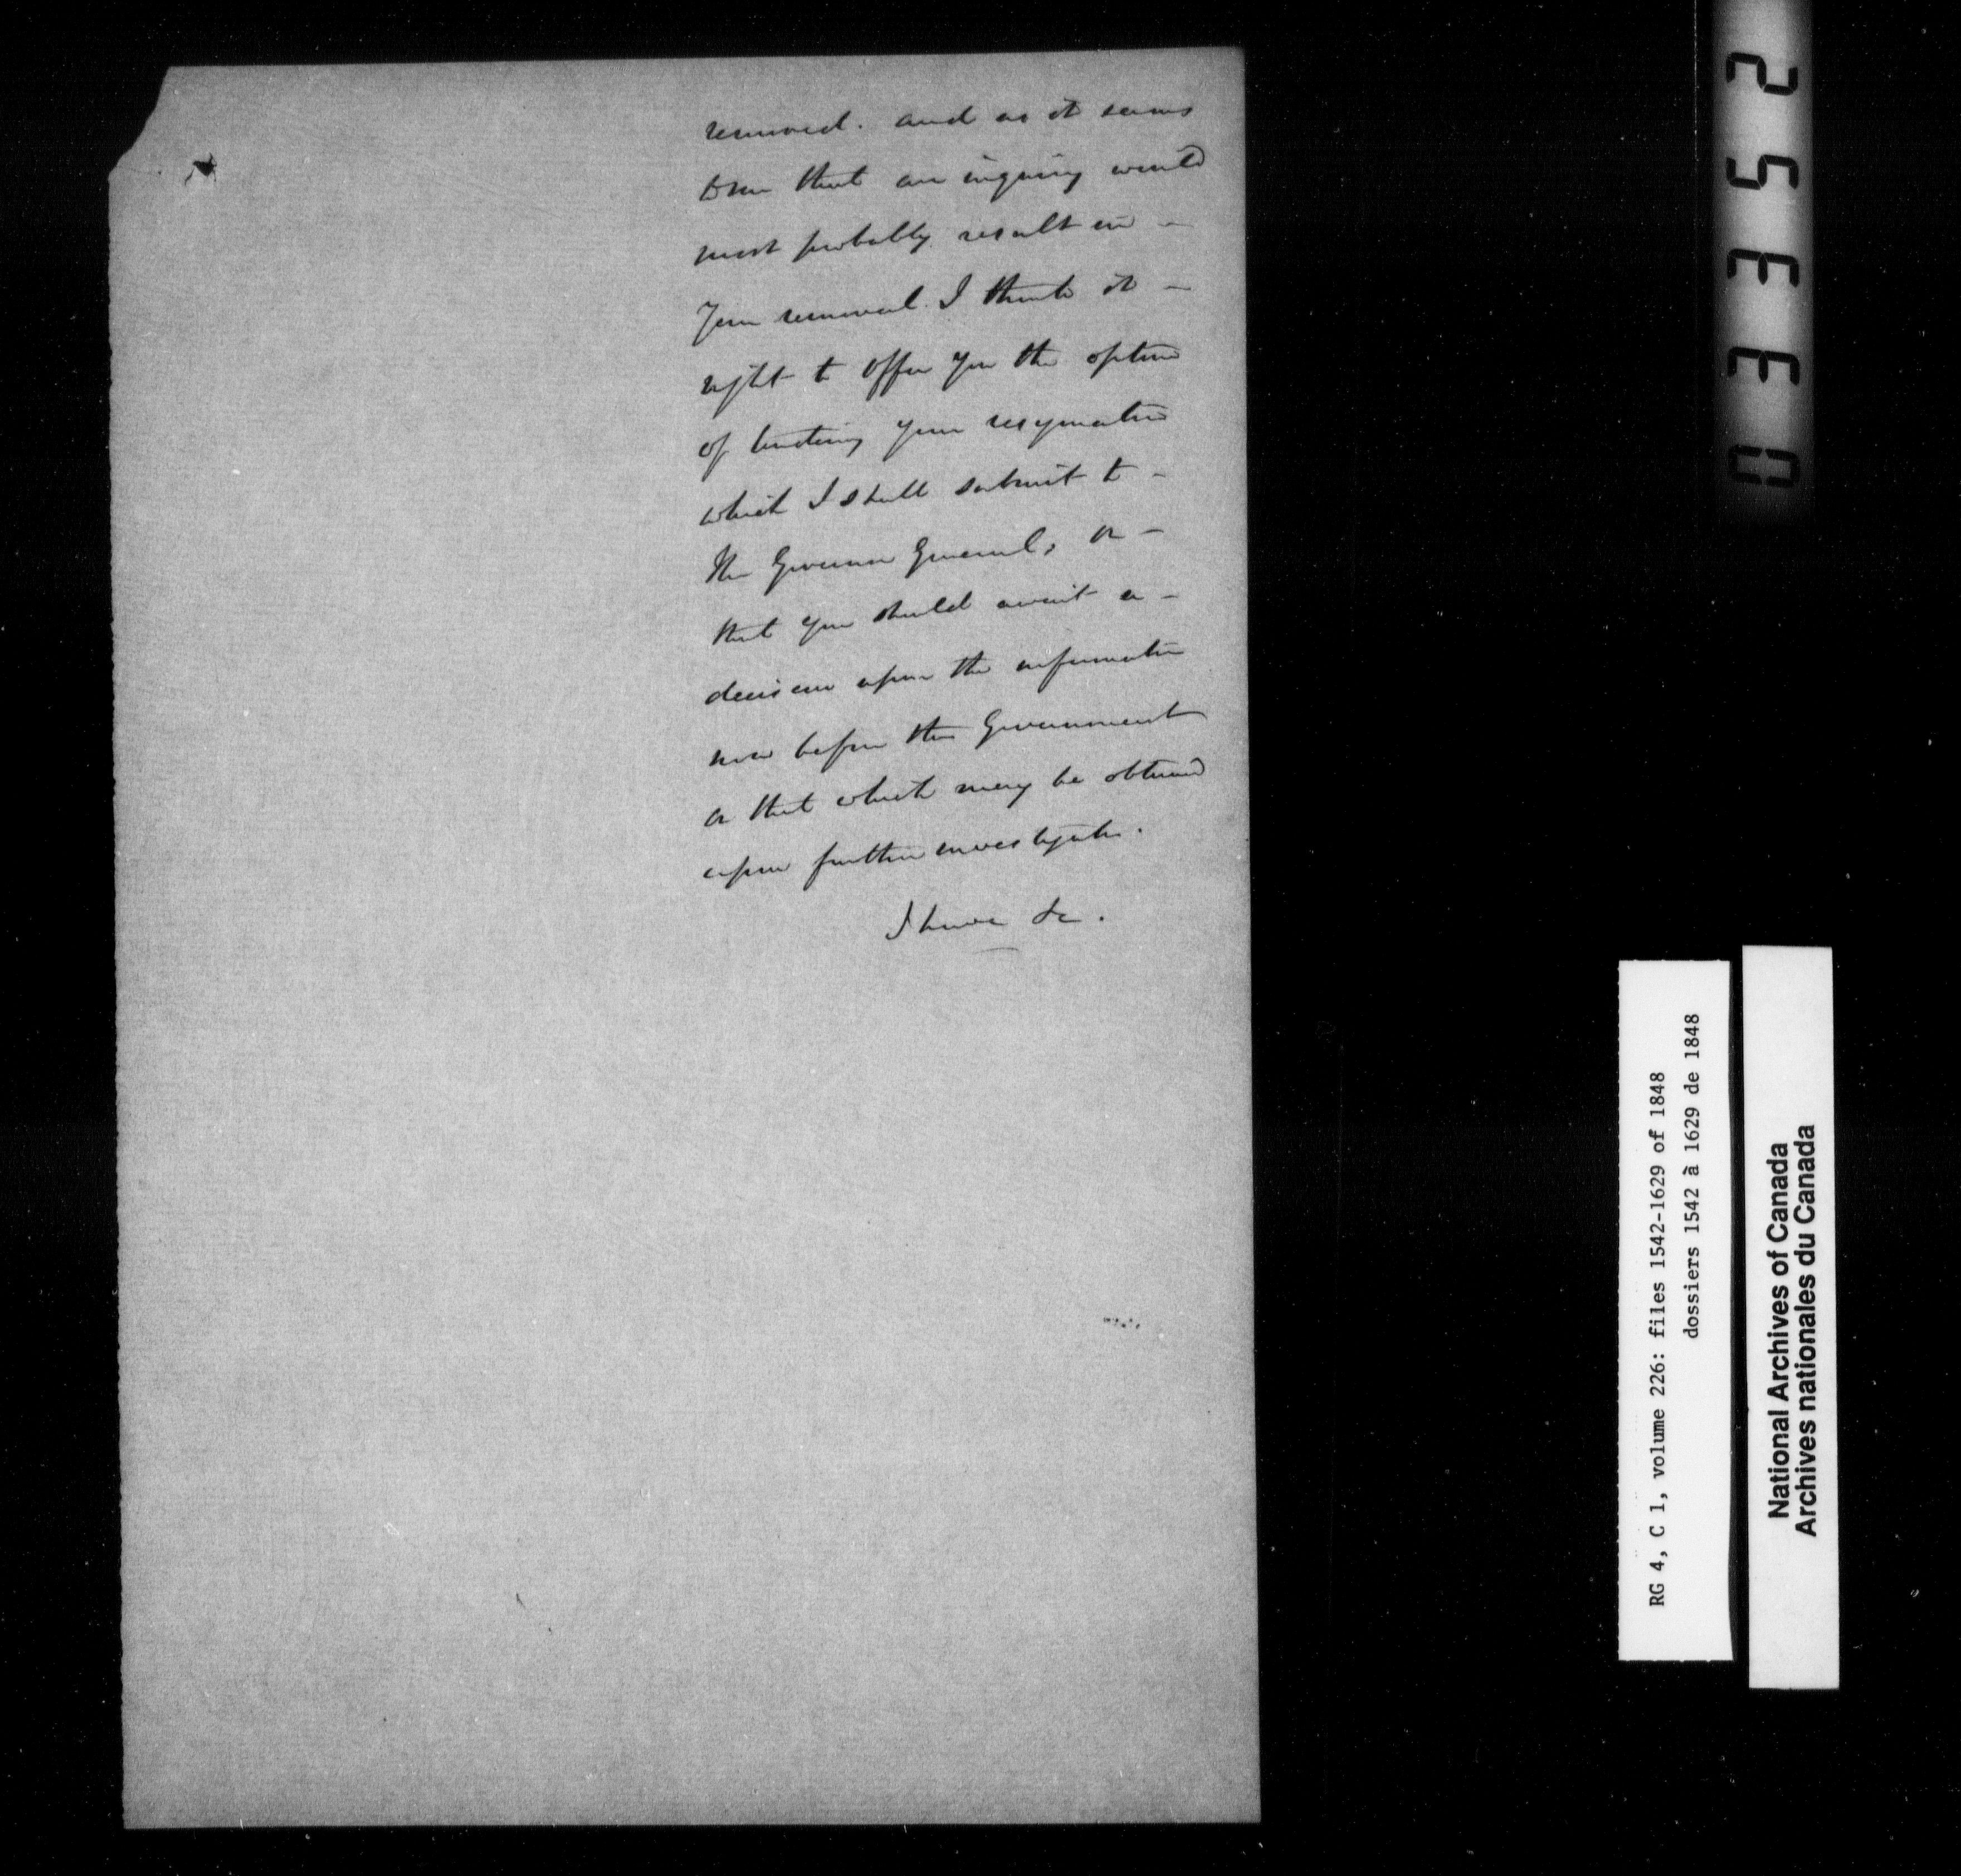 removed. and as it seems
to me that an inquiry would
most probably result in –
your removal I think it –
right to offer you the option
of tendering your resignation
which I shall submit to –
the Governor General, or –
that you should await a –
decision upon the information
now before the Government
or that which may be obtained
upon further investigation.
I have &c.
03352
RG 4, C 1, volume 226: files 1542-1629 of 1848
dossiers 1542 à 1629 de 1848
National Archives of Canada
Archives nationales du Canada